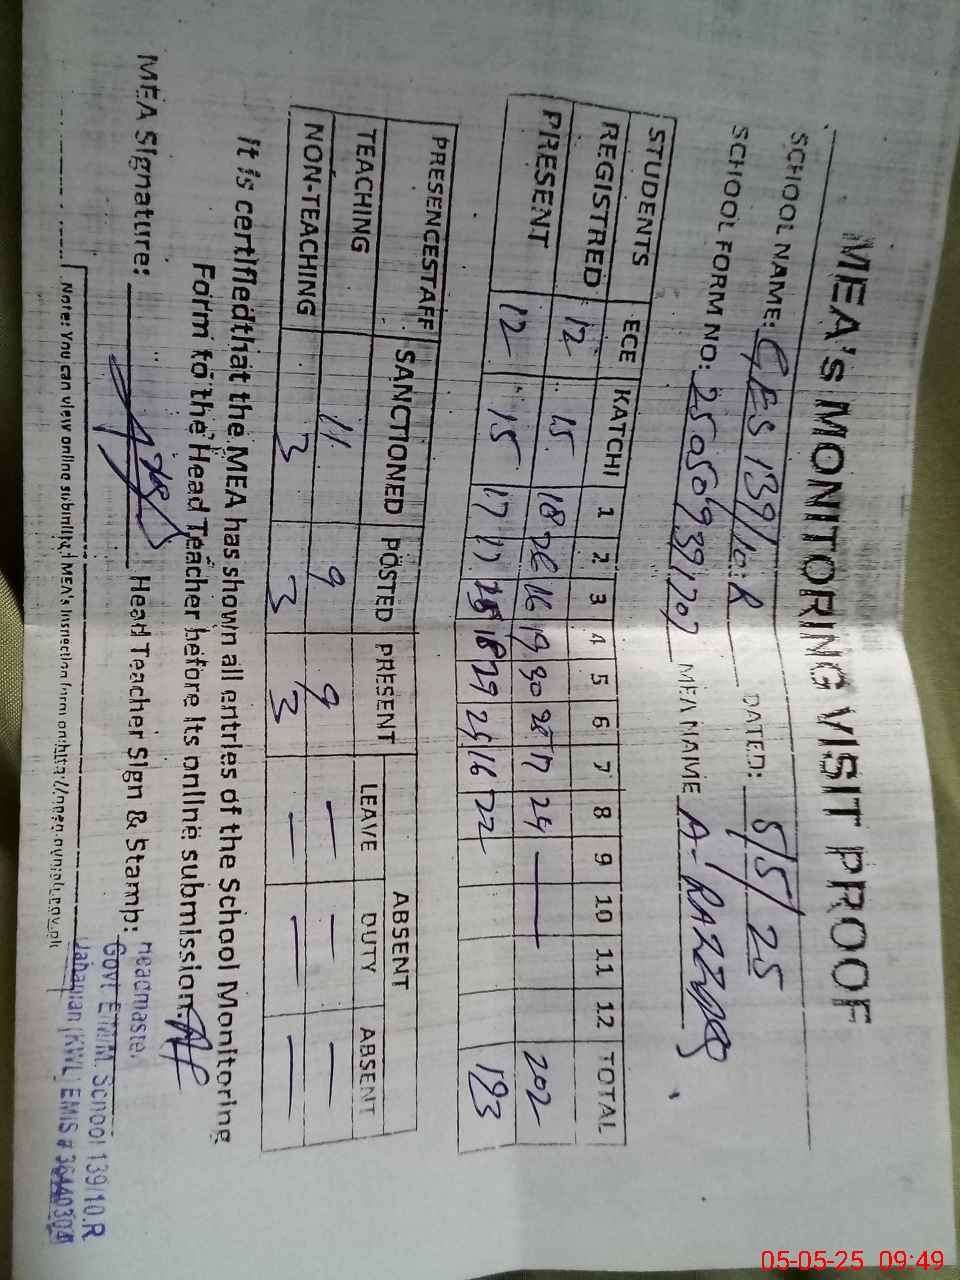 MEA's MONITORING VISIT PROOF
SCHOOL NAME: GES 139/10.R DATED: 5/5/25
SCHOOL FORM NO: MEA NAME A. RAZZAQ
STUDENTS ECE KATCHI 1 2 3 4 5 6 7 8 9 10 11 12 TOTAL
REGISTRED 12 15 18 20 16 19 30 28 17 24 — 202
PRESENT 12 15 17 17 18 29 25 16 22 193
PRESENCESTAFF SANCTIONED POSTED PRESENT ABSENT
LEAVE DUTY ABSENT
TEACHING 11 9 9 — — —
NON-TEACHING 3 3 3 — — —
It is certifiedthat the MEA has shown all entries of the School Monitoring
Form to the Head Teacher before its online submission.
MEA Signature: Head Teacher Sign & Stamp:
Headmaster
Govt E/M/M. School 139/10.R
Jahanian (KWL) EMIS # 36440304
Note: You can view online submitted MEA's Inspection form on:
05-05-25 09:49